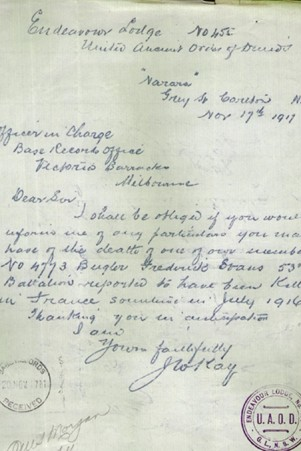 Endeavour Lodge No 45
United Ancient Order of Druids
"Narara"
Grey St Carlton
Nov 17th 1917
Officer in Charge
Base Records Office
Victoria Barracks
Melbourne
Dear Sir
I shall be obliged if you would
inform me of any particulars you may
have of the death of one of our members
No 4773 Bugler Frederick Evans 53rd
Battalion reported to have been Killed
in France sometime in July 1916
Thanking you in anticipation
I am
Yours faithfully
J W Kay
RECEIVED
ENDEAVOUR LODGE, No
U.A.O.D.
G.L., N.S.W.